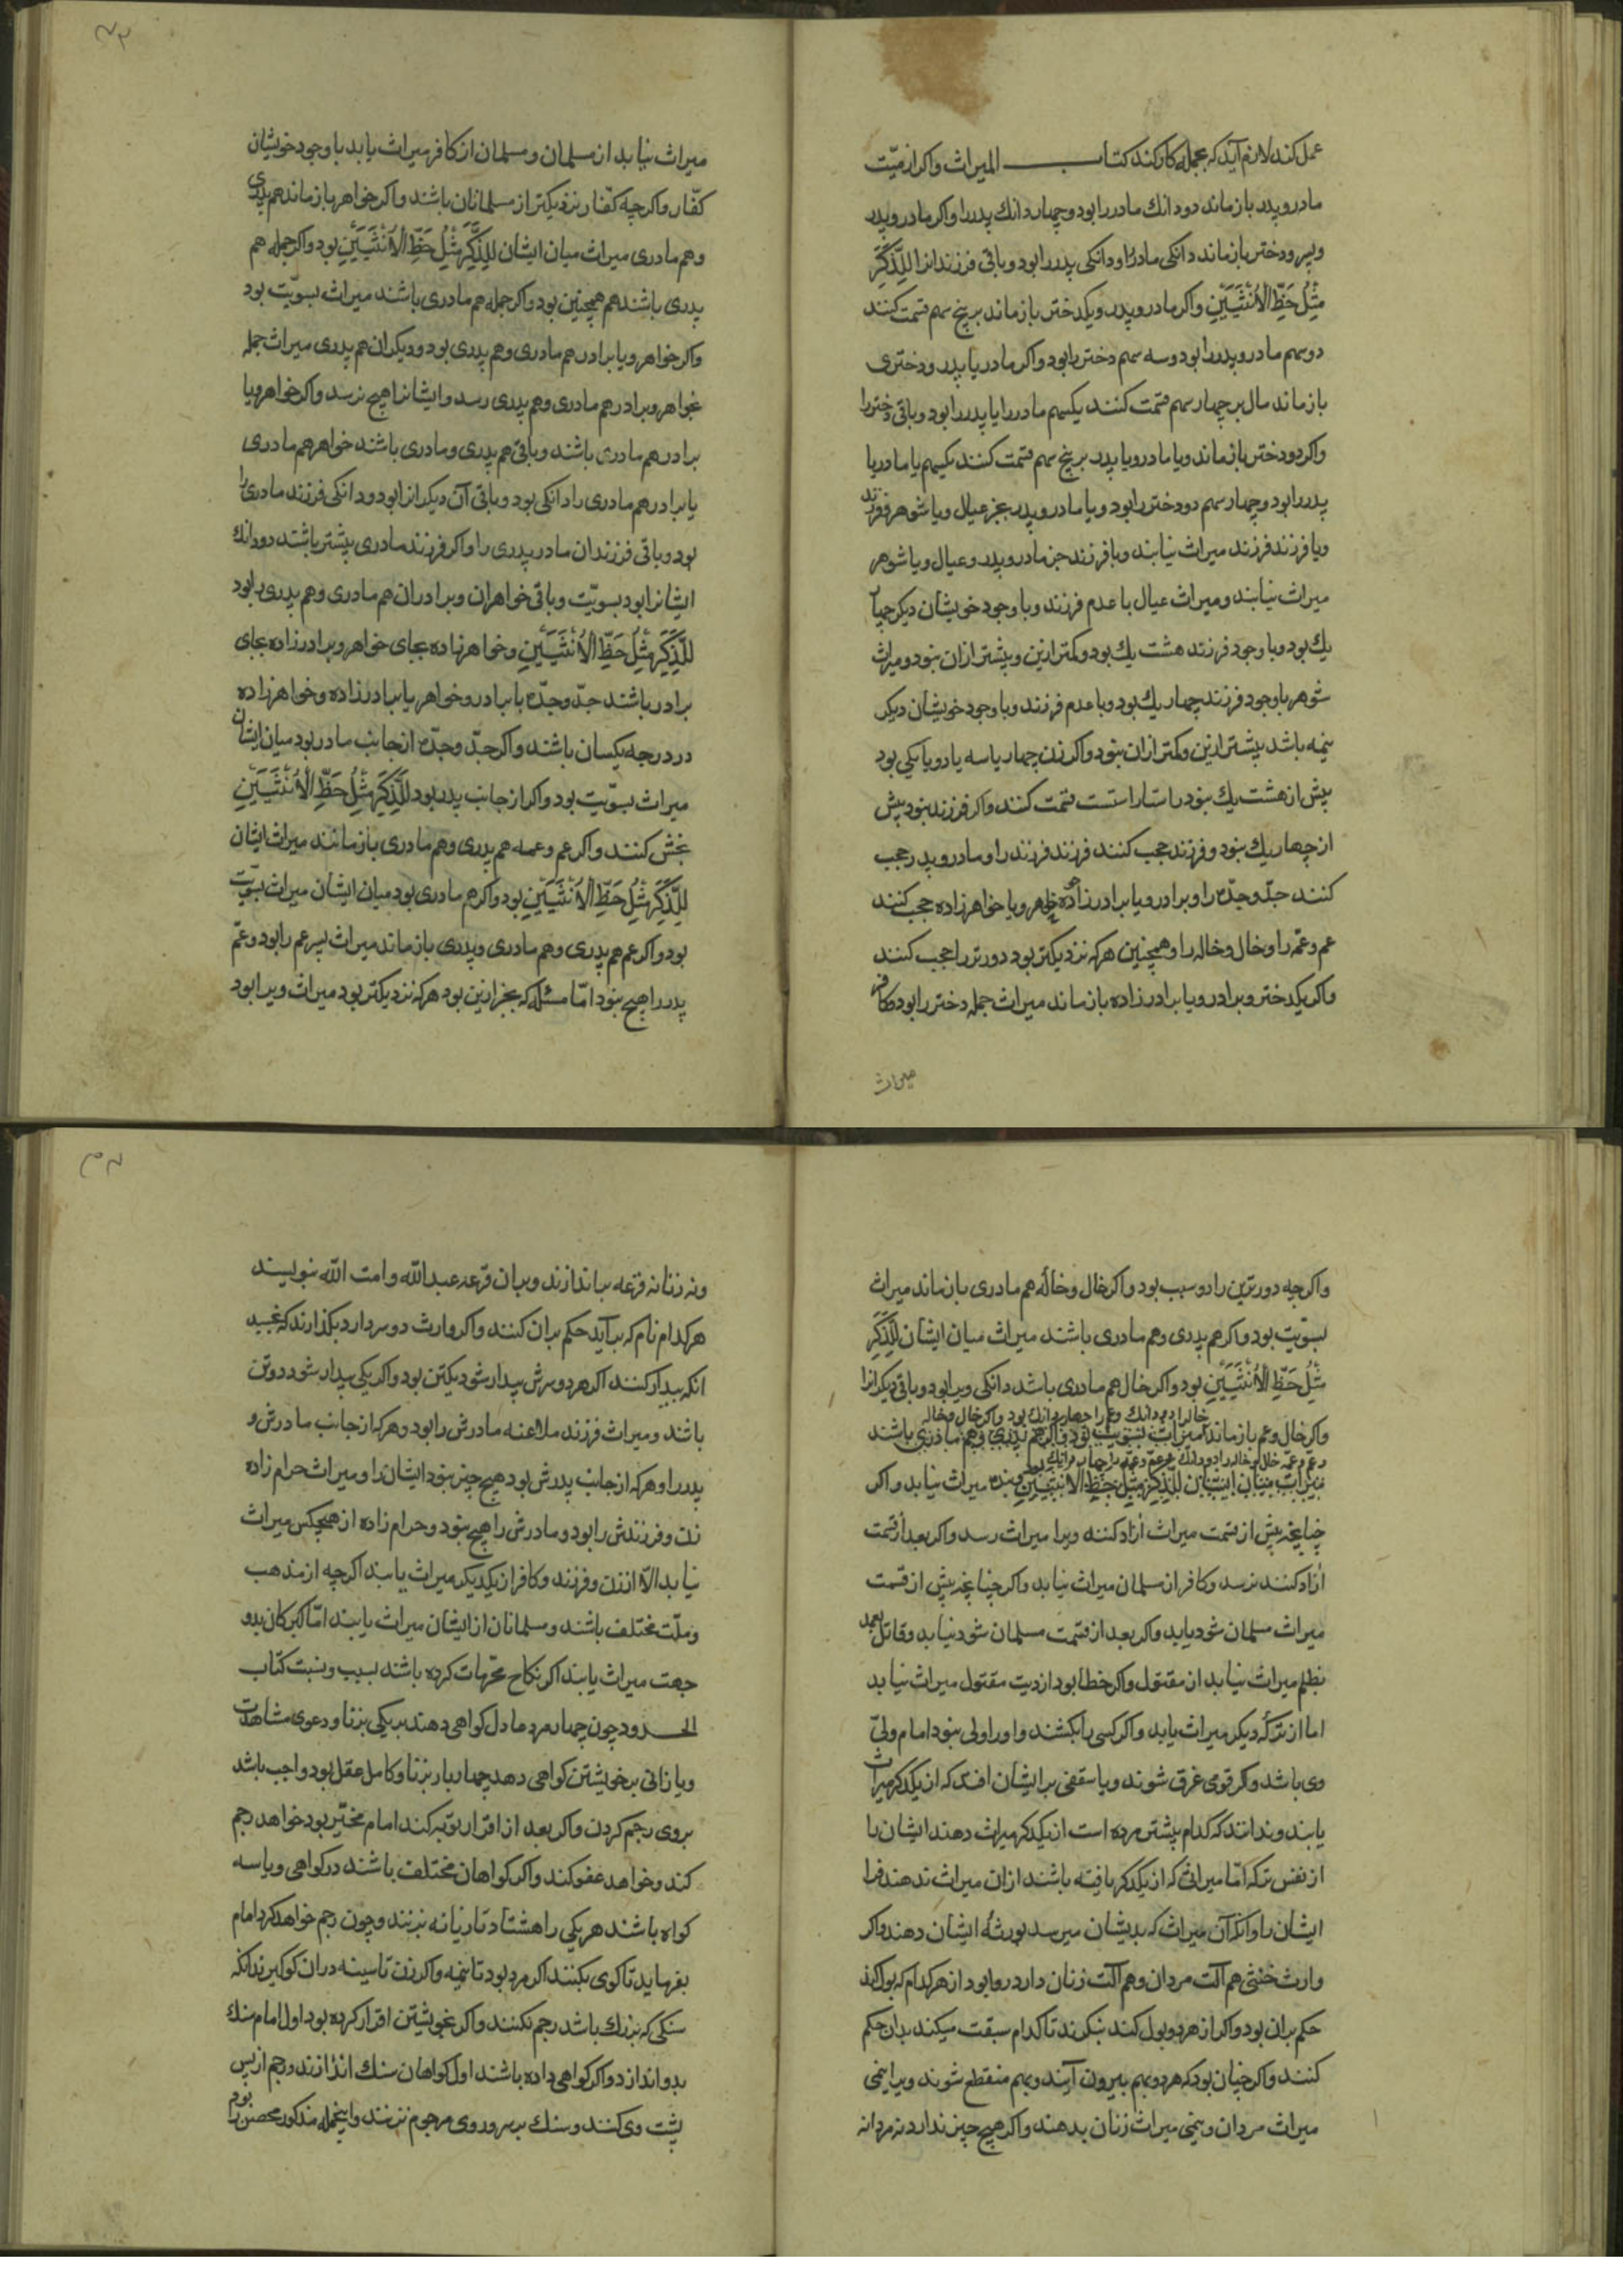 عمل کند لازم آید که بجمله کار کند کتاب المیراث واکر از میّت
مادر وپدر بازماند دو دانك مادر را بود وچهار دانك پدر را واکر مادر وپدر
وپسر ودختر بازماند دانکی مادر را ودانکی پدر را بود وباقی فرزندانرا لِلذَّکَرِ
مِثْلُ حَظِّ الْاُنْثَیَیْنِ واکر مادر وپدر ویکدختر بازماند بر پنج سهم قسمت کنند
دو سهم مادر وپدر را بود وسه سهم دختر را بود واکر مادر یا پدر ودختری
بازماند مال بر چهار سهم قسمت کنند یکسهم مادر را یا پدر را بود وباقی دختر را
واکر دو دختر بازماند ویا مادر ویا پدر بر پنج سهم قسمت کنند یکسهم یا مادر یا
پدر را بود وچهار سهم دو دختر را بود ویا مادر وپدر بجز عیال ویا شوهر وفرزند
ویا فرزند فرزند میراث نیابند وبا فرزند جز مادر وپدر وعیال ویا شوهر
میراث نیابند ومیراث عیال با عدم فرزند وبا وجود خویشان دیکر چهار
یك بود وبا وجود فرزند هشت یك بود وکمتر ازین وبیشتر ازان نبود ومیراث
شوهر باوجود فرزند چهار یك بود وبا عدم فرزند وبا وجود خویشان دیکر
نیمه باشد بیشتر ازین وکمتر ازان نبود واکر زن چهار یا سه یا دو یا یکی بود
بیش از هشت یك نبود راستاراست قسمت کنند واکر فرزند نبود بیش
از چهار یك نبود وفرزند حجب کنند فرزند فرزند را ومادر وپدر حجب
کنند جدّ وجدّه را وبرادر ویا برادرزاده وخواهر ویا خواهرزاده حجب کنند
عم وعمّه را وخال وخاله را وهمچنین هرکه نزدیکتر بود دورتر را حجب کنند
واکر یکدختر وبرادر ویا برادرزاده بازماند میراث جمله دختر را بود وکافر
میراث
میراث نیابد از مسلمان ومسلمان از کافر میراث یابد باوجود خویشان
کفّار واکرچه کفّار نزدیکتر از مسلمانان باشند واکر خواهر بازماند هم پدری
وهم مادری میراث میان ایشان لِلذَّکَرِ مِثْلُ حَظِّ الْاُنْثَیَیْنِ بود واکر جمله هم
پدری باشند هم همچنین بود واکر جمله هم مادری باشند میراث بسویّت بود
واکر خواهر ویا برادر هم مادری وهم پدری بود ودیکران هم پدری میراث جمله
بخواهر وبرادر هم مادری وهم پدری رسد وایشانرا هیچ نرسد واکر خواهر ویا
برادر هم مادری باشند وباقی هم پدری ومادری باشند خواهر هم مادری
یا برادر هم مادری را دانکی بود وباقی آن دیکرانرا بود ودانکی فرزند مادری را
بود وباقی فرزندان مادر پدری را واکر فرزند مادری بیشتر باشند دو دانك
ایشانرا بود بسویّت وباقی خواهران وبرادران هم مادری وهم پدری را بود
لِلذَّکَرِ مِثْلُ حَظِّ الْاُنْثَیَیْنِ وخواهرزاده بجای خواهر وبرادرزاده بجای
برادر باشند جدّ وجدّه با برادر وخواهر یا برادرزاده وخواهرزاده
در درجه یکسان باشند واکر جدّ وجدّه از جانب مادر بود میان ایشان
میراث بسویّت بود واکر از جانب پدر بود لِلذَّکَرِ مِثْلُ حَظِّ الْاُنْثَیَیْنِ
بخش کنند واکر عم وعمه هم پدری وهم مادری بازمانند میراث ایشان
لِلذَّکَرِ مِثْلُ حَظِّ الْاُنْثَیَیْنِ بود واکر هم مادری بود میان ایشان میراث بسویّت
بود واکر عم هم پدری وهم مادری وپدری بازماند میراث پسر عم را بود وعمّ
پدر را هیچ نبود امّا مسئله که بجز ازین بود هرکه نزدیکتر بود میراث ویرا بود
واکرچه دورترین را دو سبب بود واکر خال وخاله هم مادری بازماند میراث
بسویّت بود واکر هم پدری وهم مادری باشند میراث میان ایشان لِلذَّکَرِ
مِثْلُ حَظِّ الْاُنْثَیَیْنِ بود واکر خال هم مادری باشد دانکی ویرا بود وباقی دیکرانرا
خال را دو دانك وعم را چهار دانك بود واکر خال وخاله
واکر خال وعم بازماند میراث بسویت بود واکر هم پدری وهم مادری باشند
وعم وعمّه خال وخاله را دو دانك وعم وعمّه را چهار دانك بود
میراث میان ایشان لِلذَّکَرِ مِثْلُ حَظِّ الْاُنْثَیَیْنِ وبنده میراث نیابد واکر
چنانچه پیش از قسمت میراث آزاد کنند ویرا میراث رسد واکر بعد از قسمت
آزاد کنند نرسد وکافر از مسلمان میراث نیابد واکر چنانچه پیش از قسمت
میراث مسلمان شود یابد واکر بعد از قسمت مسلمان شود نیابد وقاتل بعمد
بظلم میراث نیابد از مقتول واکر خطا بود از دیت مقتول میراث نیابد
اما از ترکه دیکر میراث یابد واکر کسی را بکشند واورا ولی نبود امام ولیّ
وی باشد واکر قومی غرق شوند ویا سقفی بر ایشان افتد که از یکدکر میراث
یابند وندانند که کدام پیشتر مرده است از یکدکر میراث دهند ایشان را
از نفس ترکه امّا میراثی که از یکدکر یافته باشند ازان میراث ندهند فرا
ایشان را وانکه آن میراث که بدیشان میرسد بورثهٔ ایشان دهند واکر
وارث خنثی هم آلت مردان وهم آلت زنان دارد روا بود از هرکدام که بول کند
حکم بران بود واکر از هر دو بول کند بنکرند تا کدام سبقت میکند بدان حکم
کنند واکر چنان بود که هر دو بهم بیرون آیند وبهم منقطع شوند ویرا نیمی
میراث مردان ونیمی میراث زنان بدهند واکر هیچ چیز ندارد نه مردانه
ونه زنانه قرعه بیاندازند وبران قرعه عبدالله وامت الله بنویسند
هرکدام نام که برآید حکم بران کنند واکر وارث دو سر دارد بکذارند که بخسبد
انکه بیدار کنند اکر هر دو سرش بیدار شود یکتن بود واکر یکی بیدار شود دو تن
باشد ومیراث فرزند ملاعنه مادرش را بود وهرکه از جانب مادرش و
پدر را وهرکه از جانب پدرش بود هیچ چیز نبود ایشان را ومیراث حرام زاده
زن وفرزندش را بود ومادرش را هیچ نبود وحرام زاده از هیچکس میراث
نیابد الّا از زن وفرزند وکافر از یکدیکر میراث یابند اکرچه از مذهب
وملّت مختلف باشند ومسلمانان از ایشان میراث یابند امّا کبرکان بدو
جهت میراث یابند اکر نکاح محرّمات کرده باشند بسبب ونسبت کتاب
الحدود چون چهار مرد عادل کواهی دهند بر یکی بزنا ودعوی مشاهدت
ویا زانی بر خویشتن کواهی دهد چهار بار بزنا وکامل عقل بود واجب باشد
بروی رجم کردن واکر بعد از اقرار توبه کند امام مخیّر بود خواهد رجم
کند وخواهد عفو کند واکر کواهان مختلف باشند در کواهی ویا سه
کواه باشند هر یکی را هشتاد تازیانه بزنند وچون رجم خواهد کرد امام
بفرماید تا کوی بکنند اکر مرد بود تا نیمه واکر زن تا سینه دران کو کیرند انکه
سنکی که بزرك باشد رجم نکنند واکر بخویشتن اقرار کرده بود اول امام سنك
بدو اندازد واکر کواهی داده باشند اول کواهان سنك اندازند ورجم از پس
پشت وی کنند وسنك بر سر وروی مرجوم نزنند واینجمله مذکور محصن را بود